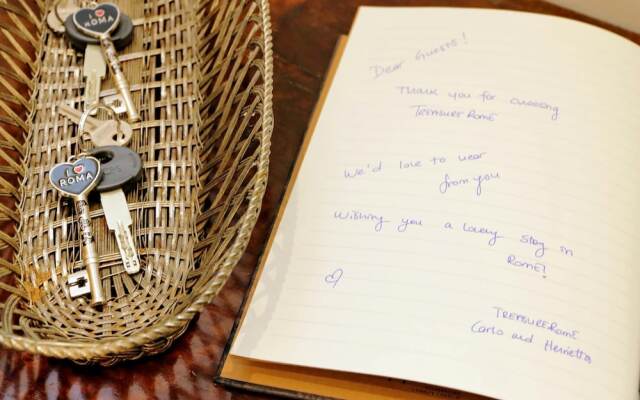 I ❤
ROMA
I ❤
ROMA
Dear Guests!
Thank you for choosing
TREASUREROME
We'd love to hear
from you
Wishing you a lovely stay in
Rome!
♡
TREASUREROME
Carlo and Henrietta